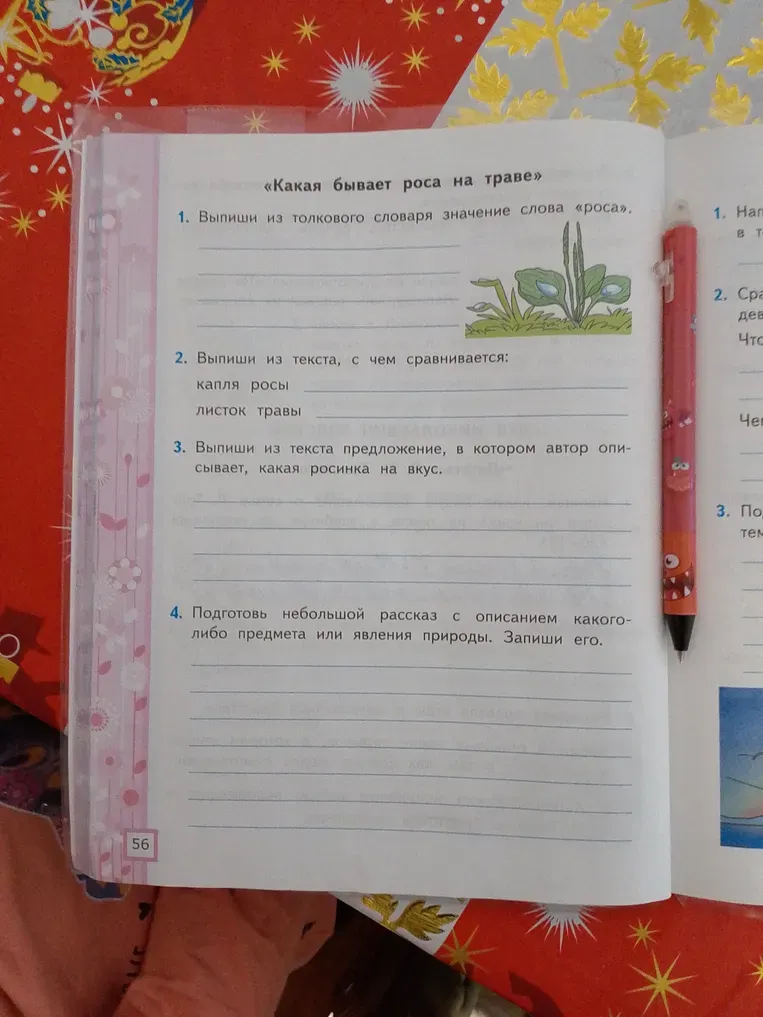 «Какая бывает роса на траве»
1. Выпиши из толкового словаря значение слова «роса».
2. Выпиши из текста, с чем сравнивается:
капля росы
листок травы
3. Выпиши из текста предложение, в котором автор опи-
сывает, какая росинка на вкус.
4. Подготовь небольшой рассказ с описанием какого-
либо предмета или явления природы. Запиши его.
56
1.
в
2.
Что
3.